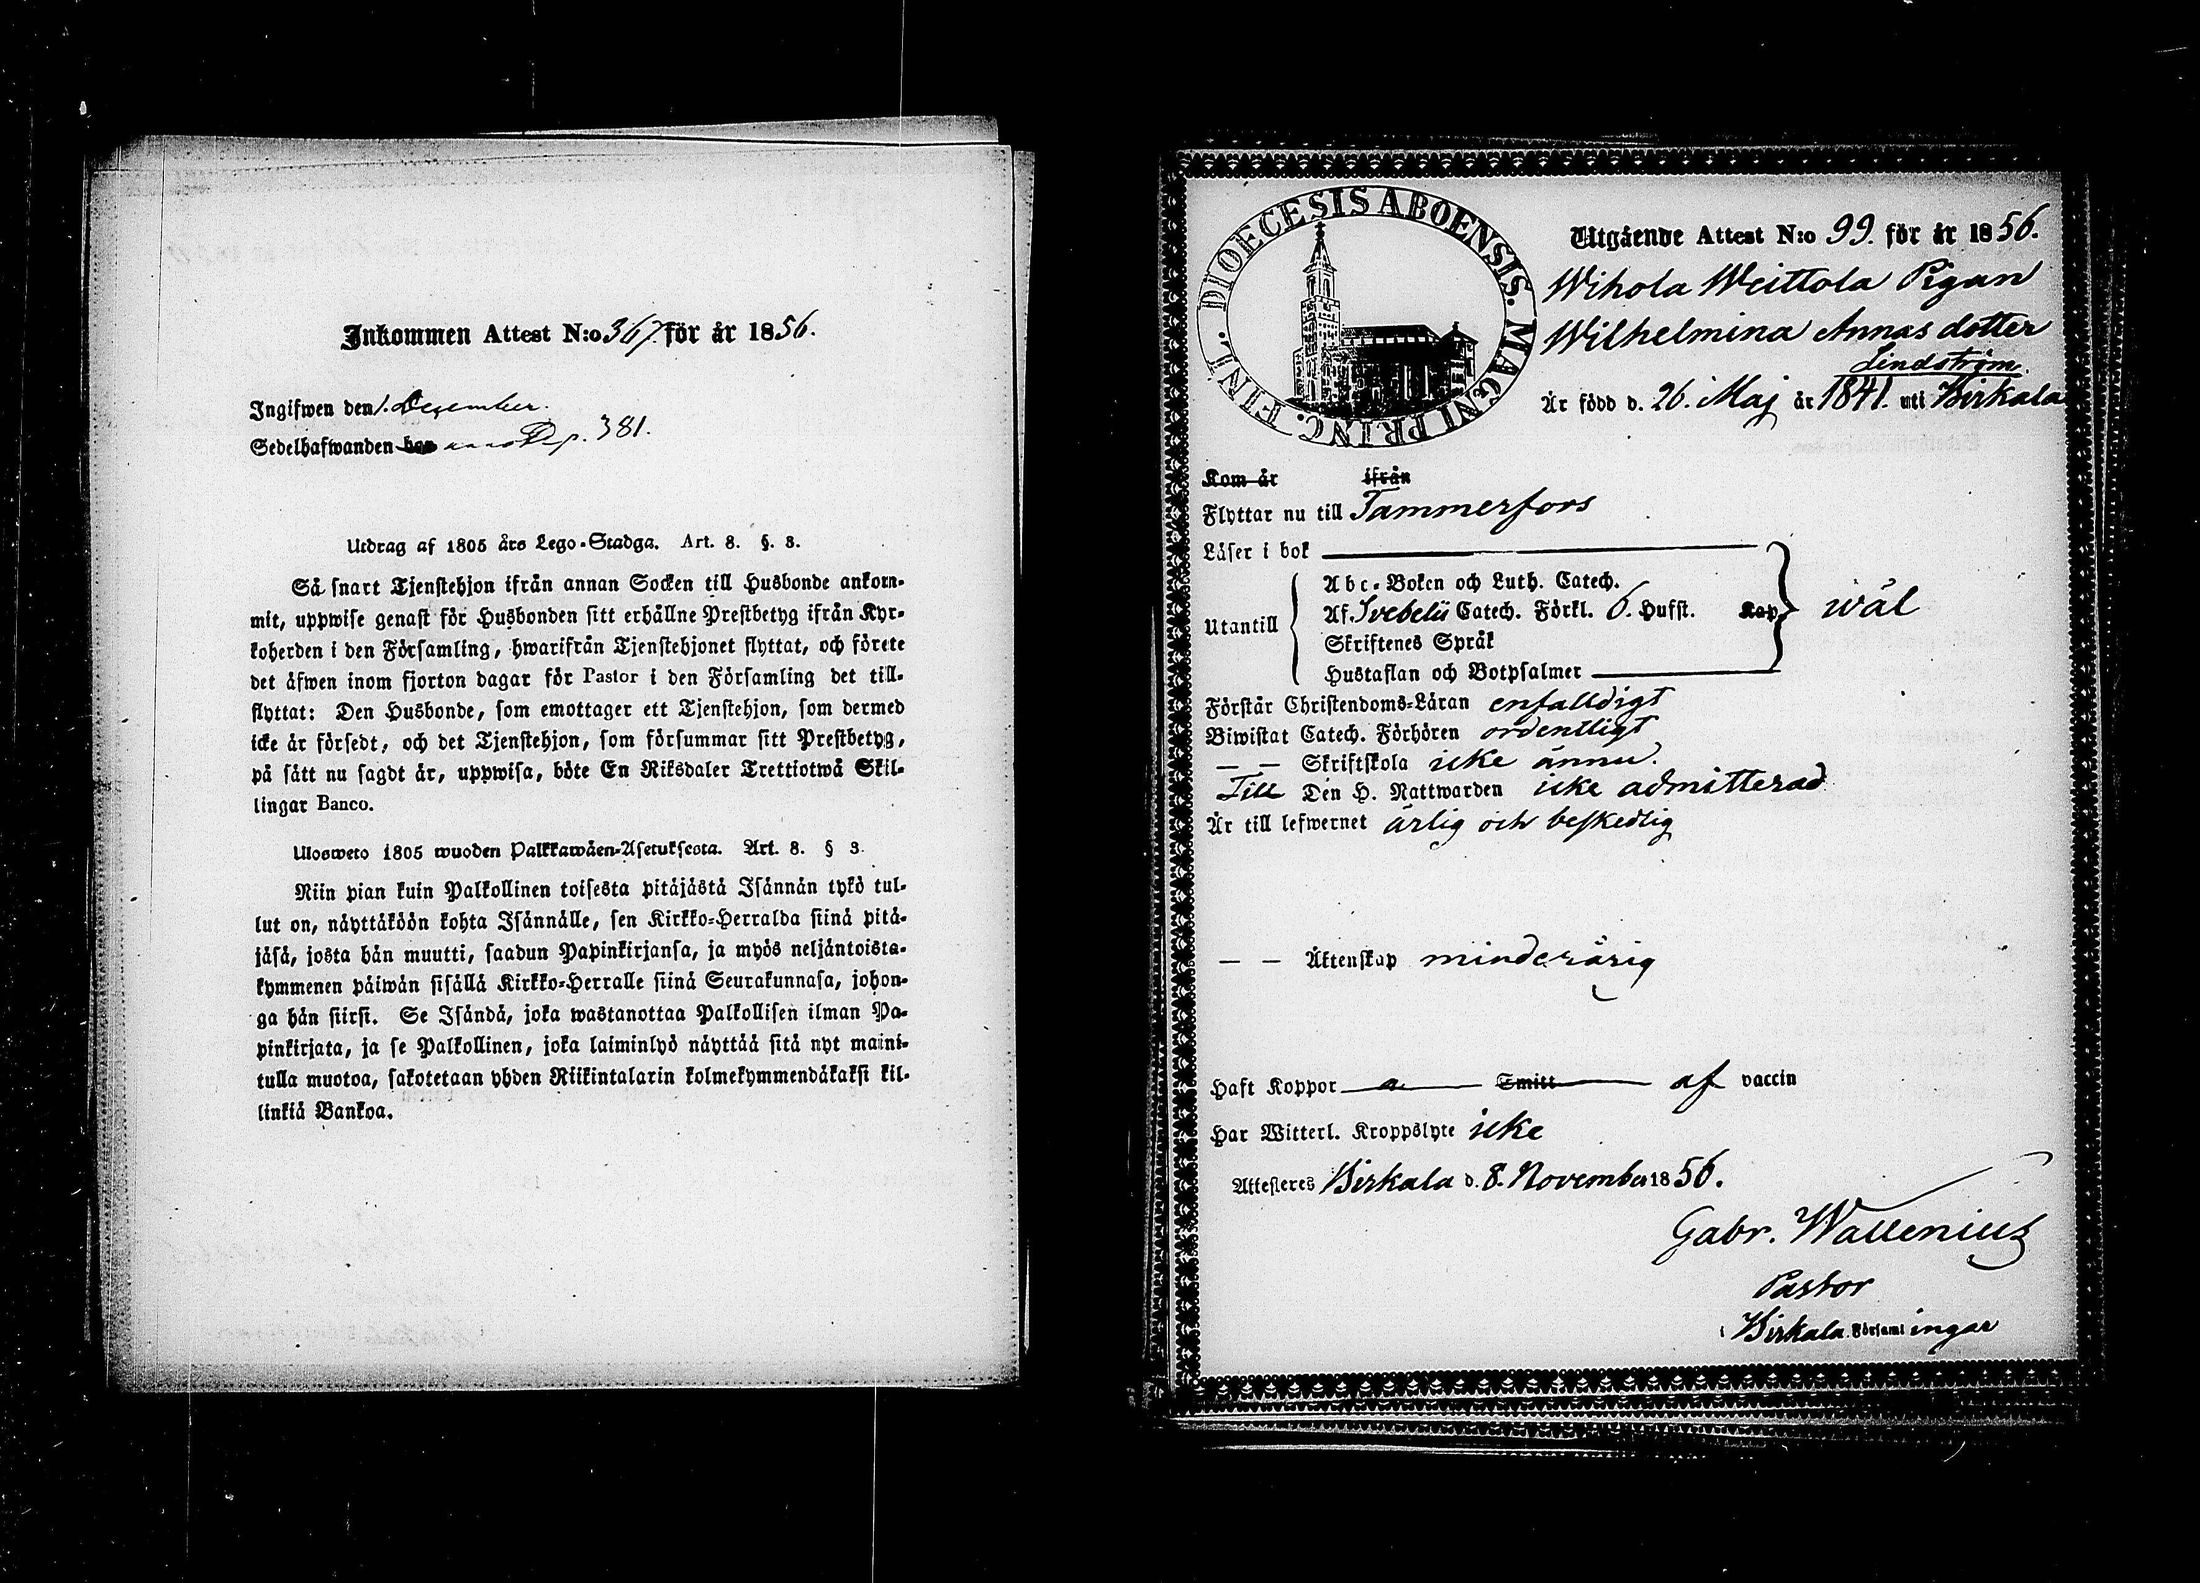 Inkommen Attest N:o 367 för år 1856.
Ingifwen den 1. December.
Sedelhafwanden p. 381.
Utdrag af 1805 års Lego-Stadga. Art. 8. §. 3.
Så snart Tjenstehjon ifrån annan Socken till Husbonde ankom-
mit, uppwise genast för Husbonden sitt erhållne Prestbetyg ifrån Kyr-
koherden i den Församling, hwarifrån Tjenstehjonet flyttat, och förete
det äfwen inom fjorton dagar för Pastor i den Församling det till-
flyttat: Den Husbonde, som emottager ett Tjenstehjon, som dermed
icke är försedt, och det Tjenstehjon, som försummar sitt Prestbetyg,
på sätt nu sagdt är, uppwisa, böte En Riksdaler Trettiotwå Skil-
lingar Banco.
Ulosweto 1805 wuoden Palkkawäen-Asetuksesta. Art. 8. § 3.
Niin pian kuin Palkollinen toisesta pitäjästä Isännän tykö tul-
lut on, näyttäköön kohta Isännälle, sen Kirkko-Herralda siinä pitä-
jäsä, josta hän muutti, saadun Papinkirjansa, ja myös neljäntoista-
kymmenen päiwän sisällä Kirkko-Herralle siinä Seurakunnasa, johon-
ga hän siirsi. Se Isändä, joka wastanottaa Palkollisen ilman Pa-
pinkirjata, ja se Palkollinen, joka laiminlyö näyttää sitä nyt maini-
tulla muotoa, sakotetaan yhden Riikintalarin kolmekymmendäkaksi kil-
linkiä Bankoa.
DIOECESIS ABOENSIS. MAGNI PRINC. FINL.
Utgående Attest N:o 99. för år 1856.
Wihola Weittola Pigan
Wilhelmina Annas dotter
Lindström.
Är född d. 26. Maj år 1841. uti Birkala
Kom år ifrån
Flyttar nu till Tammerfors
Läser i bok
Utantill
Abc-Boken och Luth. Catech.
Af Svebelii Catech. Förkl. 6. Hufst. Kap wäl
Skriftenes Språk
Hustaflan och Botpsalmer
Förstår Christendoms-Läran enfalldigt
Biwistat Catech. Förhören ordentligt
— — Skriftskola icke ännu.
Till Den H. Nattwarden icke admitterad
Är till lefwernet ärlig och beskedlig
— — Äktenskap minderårig
Haft Koppor a Smitt af vaccin
Har Witterl. Kroppslyte icke
Attesteres Birkala d. 8. November 1856.
Gabr. Wallenius
Pastor
i Birkala Församlingar